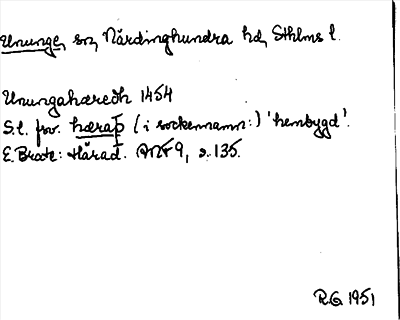 Ununge, sn, Närdinghundra hd, Sthlms l.
Unungahæredh 1454
S.l. fsv. hæraþ (i sockennamn:) 'hembygd'.
E. Brate: Härad. ANF 9, s. 135.
R.G. 1951